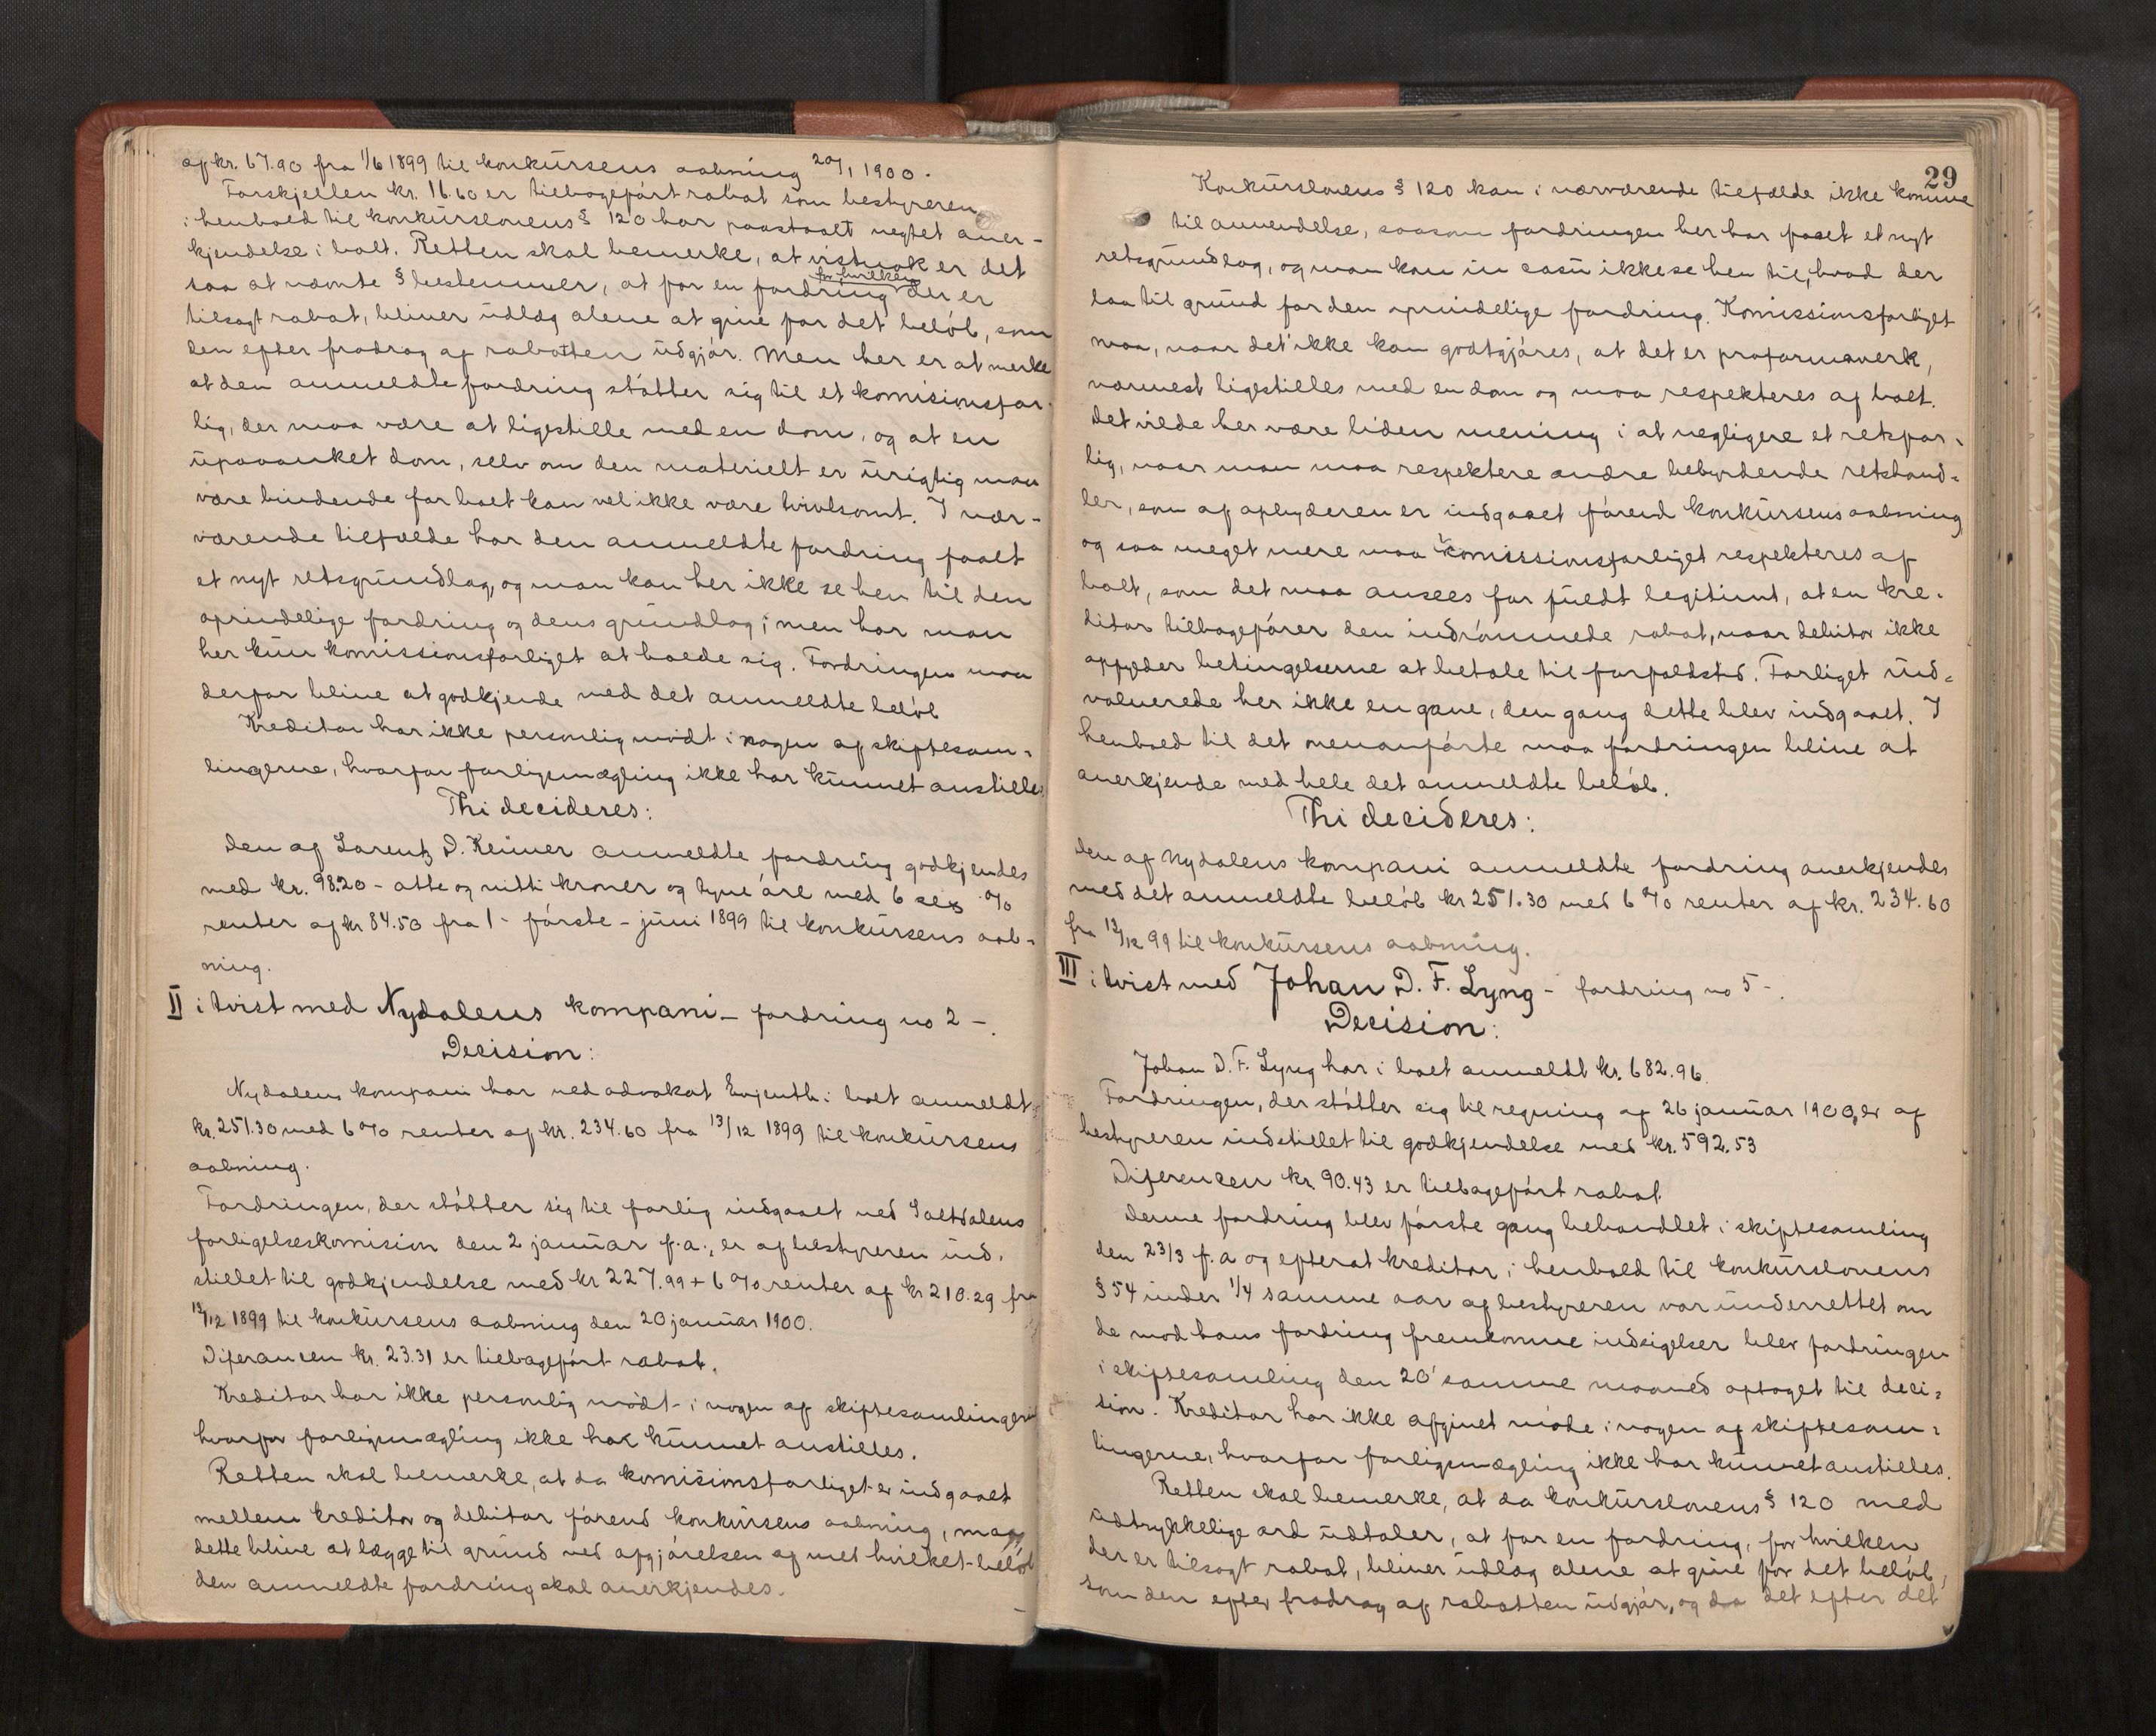 af kr. 67.90 fra 1/6 1899 til konkursens aabning 20/1 1900.
Forskjellen kr. 16.60 er tilbageført rabat som bestyreren
i henhold til konkurslovens § 120 har paastaalt negtet aner-
kjendelse i boet. Retten skal bemerke, at vistnok er det
saa at nævnte § bestemmer, at for en fordring for hvilken der er
tilsagt rabat, bliver udlæg alene at give for det beløb, som
den efter fradrag af rabatten udgjør. Men her er at merke
at den anmeldte fordring støtter sig til et komisionsfor-
lig, der maa være at ligestille med en dom, og at en
upaaanket dom, selv om den materielt er urigtig maa
være bindende for boet kan vel ikke være tvivlsomt. I nær-
værende tilfælde har den anmeldte fordring faaet
et nyt retsgrundlag, og man kan her ikke se hen til den
oprindelige fordring og dens grundlag; men har man
her kun komissionsforliget at holde sig. Fordringen maa
derfor blive at godkjende med det anmeldte beløb
Kreditor har ikke personlig mødt i nogen af skiftesam-
lingerne, hvorfor forligsmægling ikke har kunnet anstilles.
Thi decideres:
Den af Lorentz D. Keimer anmeldte fordring godkjendes
med kr. 98.20 - otte og nitti kroner og tyve øre med 6 sex %
renter af kr 84.50 fra 1 - første - juni 1899 til konkursens aab-
ning.
II i tvist med Nydalens kompani - fordring no 2 -.
Decision:
Nydalens kompani har ved advokat Evjenth i boet anmeldt
kr. 251.30 med 6 % renter af kr. 234.60 fra 13/12 1899 til konkursens
aabning.
Fordringen, der støtter sig til forlig indgaaet ved Saltdalens
forligelseskomision den 2 januar f.a., er af bestyreren ind-
stillet til godkjendelse med kr 227.99 + 6 % renter af kr 210.29 fra
13/12 1899 til konkursens aabning den 20 januar 1900.
Diferancen kr. 23.31 er tilbageført rabat.
Kreditor har ikke personlig mødt i nogen af skiftesamlingerne
hvorfor forligsmægling ikke har kunnet anstilles.
Retten skal bemerke, at da komisionsforliget er indgaaet
mellem kreditor og debitor førend konkursens aabning, maa
dette blive at lægge til grund ved afgjørelsen af med hvilket beløb
den anmeldte fordring skal anerkjendes.
29
Konkurslovens § 120 kan i nærværende tilfælde ikke komme
til anvendelse, saasom fordringen her har faaet et nyt
retsgrundlag, og man kan in casu ikke se hen til, hvad der
laa til grund for den oprindelige fordring. Komissionsforliget
maa, naar det ikke kan godtgjøres, at det er proformaverk,
nærmest ligestilles med en dom og maa respekteres af boet.
Det vilde her være liden mening i at negligere et retsfor-
lig, naar man maa respektere andre bebyrdende retshand-
ler, som af opbyderen er indgaaet førend konkursens aabning
og saa meget mere maa komissionsforliget respekteres af
boet, som det maa ansees for fuldt legitimt, at en kre-
ditor tilbagefører den indrømmede rabat, naar debitor ikke
opfylder betingelserne at betale til forfaldstid. Forliget ind-
volverede her ikke en gave, den gang dette blev indgaaet. I
henhold til det ovenanførte maa fordringen blive at
anerkjende med hele det anmeldte beløb.
Thi decideres:
Den af Nydalens kompani anmeldte fordring anerkjendes
med det anmeldte beløb kr 251.30 med 6 % renter af kr. 234.60
fra 13/12 99 til konkursens aabning.
III i tvist med Johan D. F. Lyng - fordring no 5 -.
Decision:
Johan D. F. Lyng har i boet anmeldt kr. 682.96.
Fordringen, der støtter sig til regning af 26 januar 1900, er af
bestyreren indstillet til godkjendelse med kr. 592.53
Diferencen kr. 90.43 er tilbageført rabat.
Denne fordring blev første gang behandlet i skiftesamling
den 23/3 f.a og efterat kreditor i henhold til konkurslovens
§ 54 under 1/4 samme aar af bestyreren var underrettet om
de mod hans fordring fremkomne indsigelser blev fordringen
i skiftesamling den 20' samme maaned optaget til deci-
sion. Kreditor har ikke afgivet møde i nogen af skiftesam-
lingerne, hvorfor forligsmægling ikke har kunnet anstilles.
Retten skal bemerke, at da konkurslovens § 120 med
udtrykkelige ord udtaler, at for en fordring, for hvilken
der er tilsagt rabat, bliver udlæg alene at give for det beløb,
som den efter fradrag af rabatten udgjør, og da det efter det